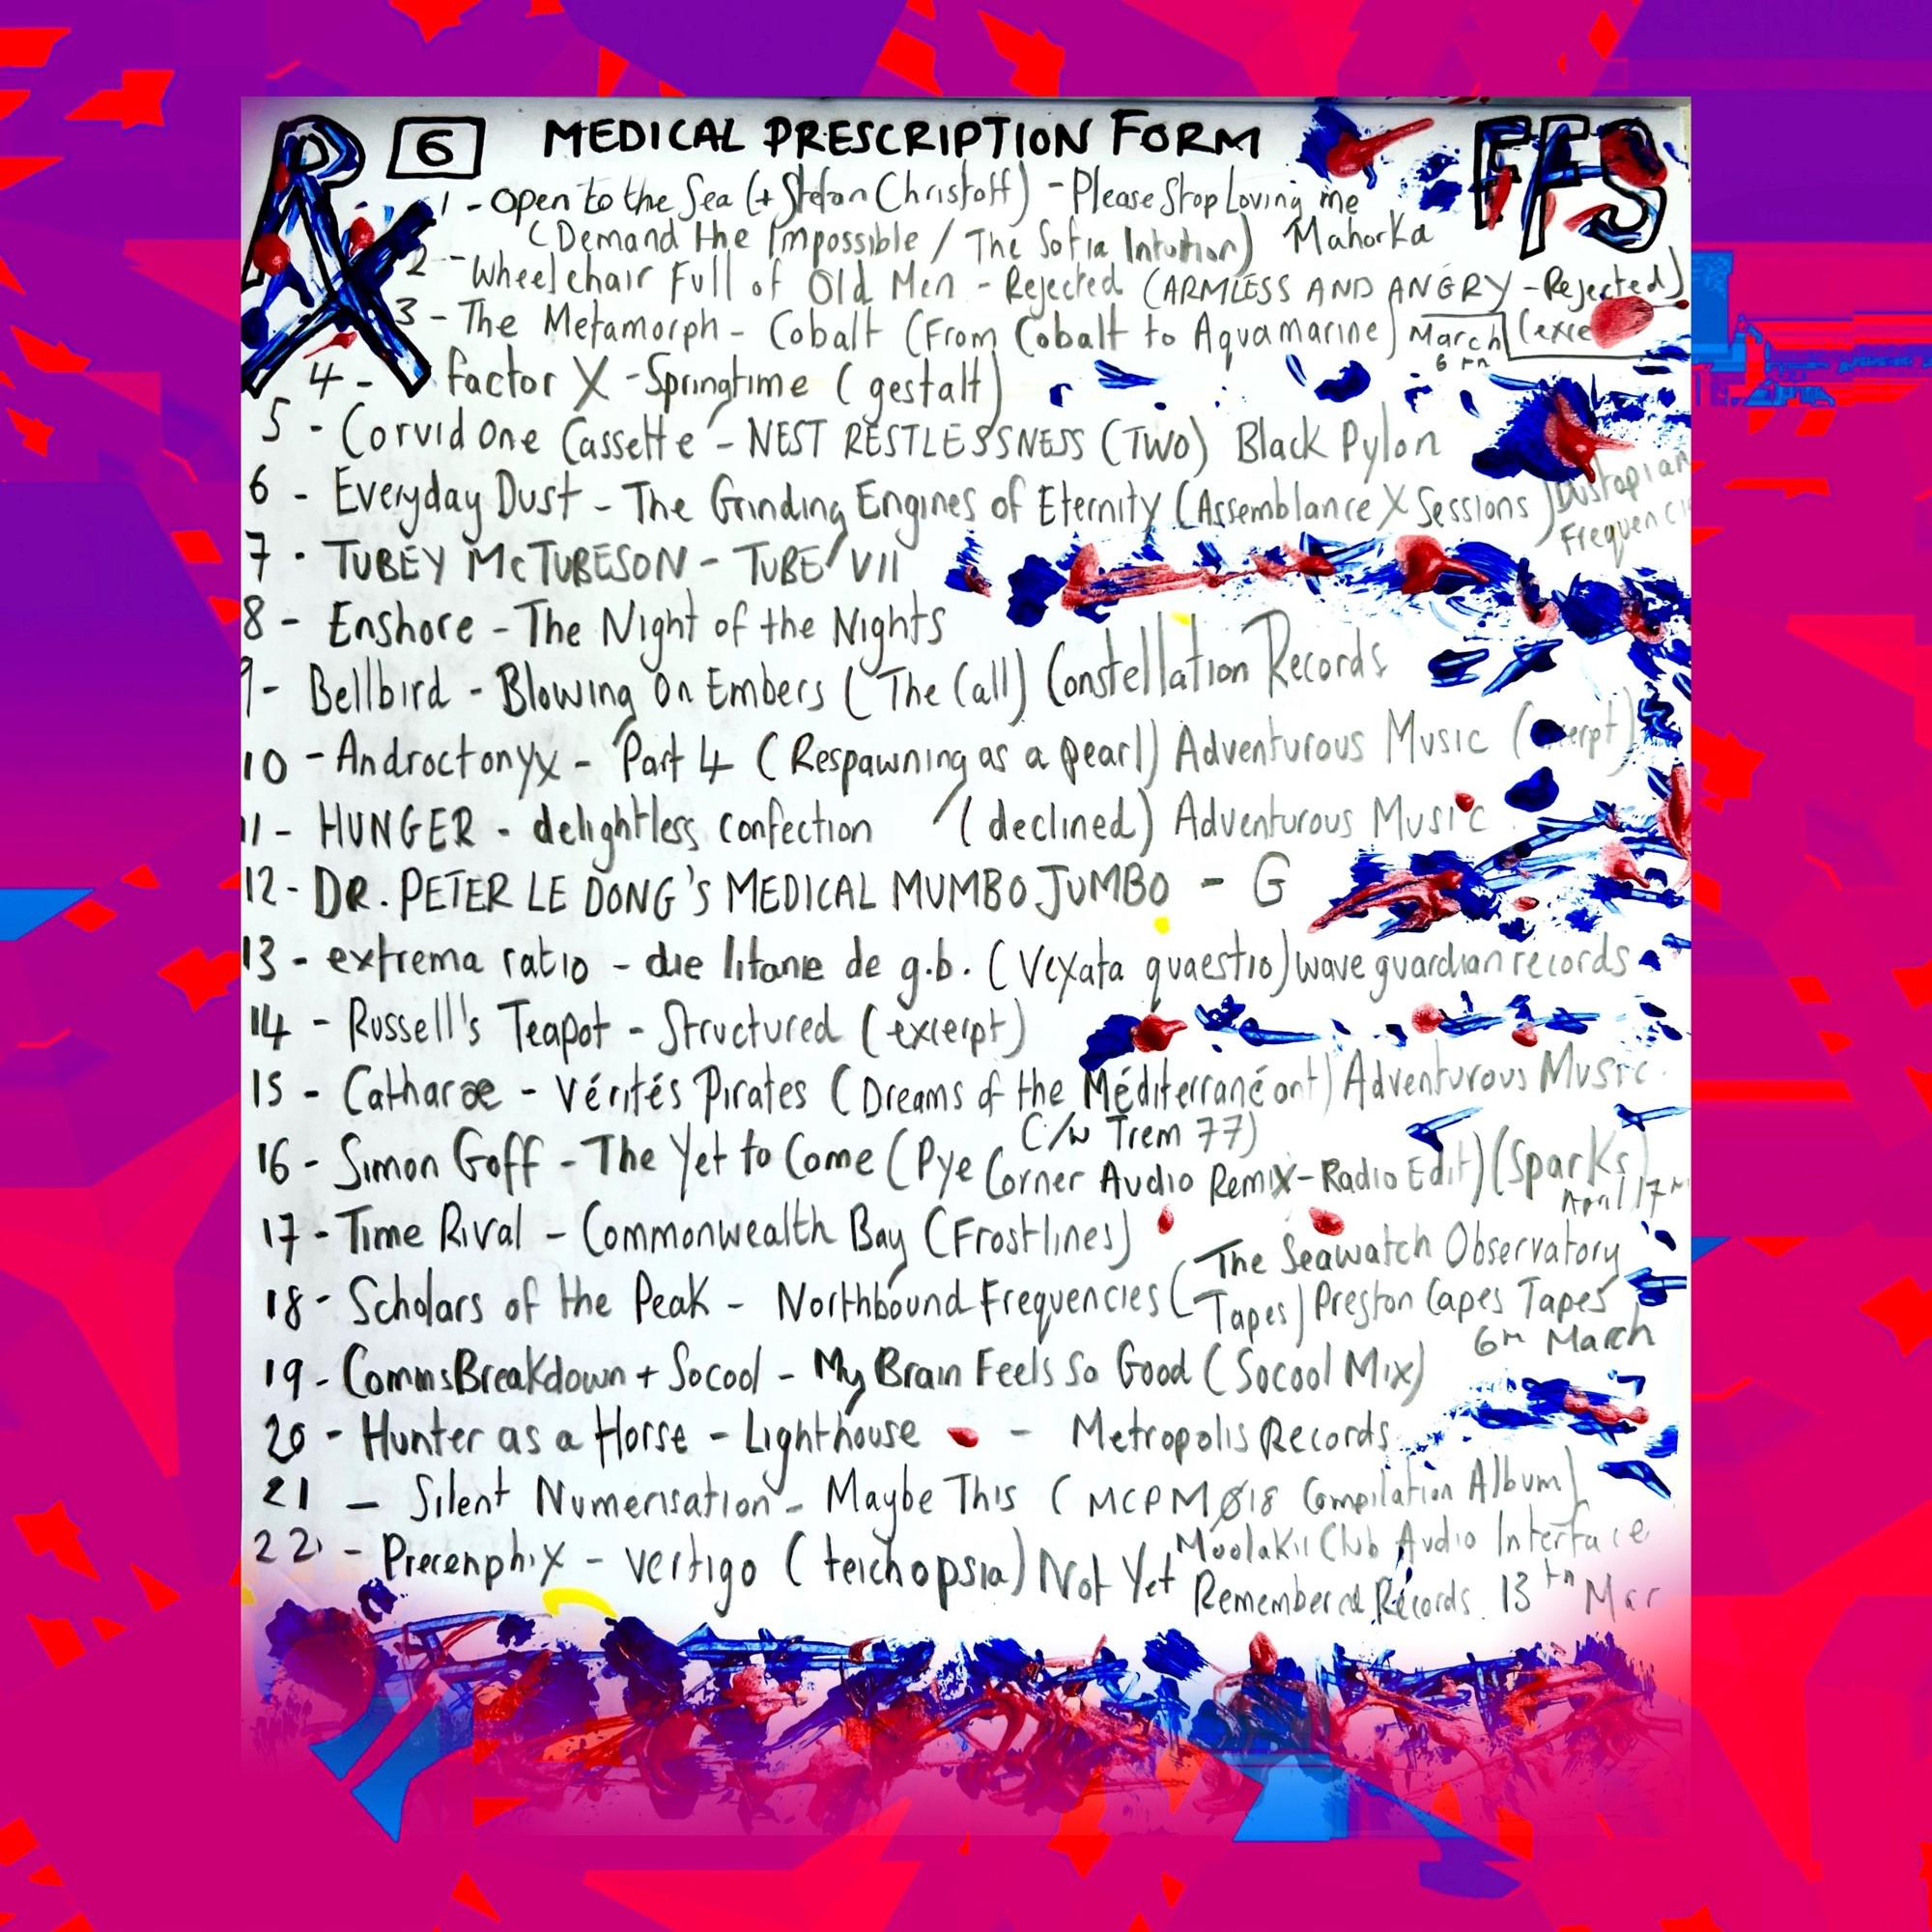 Rx 6 MEDICAL PRESCRIPTION FORM FFS
1 - Open to the Sea (+ Stefan Christoff) - Please Stop Loving me
(Demand the Impossible / The Sofia Intuition) Mahorka
2 - Wheelchair Full of Old Men - Rejected (ARMLESS AND ANGRY - Rejected)
3 - The Metamorph - Cobalt (From Cobalt to Aquamarine) March 6th
4 - Factor X - Springtime (gestalt)
5 - Corvid One Cassette - NEST RESTLESSNESS (TWO) Black Pylon
6 - Everyday Dust - The Grinding Engines of Eternity (Assemblance X Sessions) Dustopian
7 - TUBEY McTUBESON - TUBE VII
8 - Enshore - The Night of the Nights
9 - Bellbird - Blowing On Embers (The Call) Constellation Records
10 - Androctonyx - Part 4 (Respawning as a pearl) Adventurous Music
11 - HUNGER - delightless confection (declined) Adventurous Music
12 - DR. PETER LE DONG'S MEDICAL MUMBO JUMBO - G
13 - extrema ratio - die litanie de g.b. (Vexata quaestio) wave guardian records
14 - Russell's Teapot - Structured (excerpt)
15 - Catharae - Vérités Pirates (Dreams of the Méditerranéant) Adventurous Music
C/W Trem 77)
16 - Simon Goff - The Yet to Come (Pye Corner Audio Remix - Radio Edit) (Sparks) April 17th
17 - Time Rival - Commonwealth Bay (Frostlines)
18 - Scholars of the Peak - Northbound Frequencies (The Seawatch Observatory
Tapes) Preston Capes Tapes
6th March
19 - CommsBreakdown + Socool - My Brain Feels So Good (Socool Mix)
20 - Hunter as a Horse - Lighthouse - Metropolis Records
21 - Silent Numerisation - Maybe This (MCPMØ18 Compilation Album)
Moolakii Club Audio Interface
22 - Precenphix - vertigo (teichopsia) Not Yet
Remembered Records 13th Mar